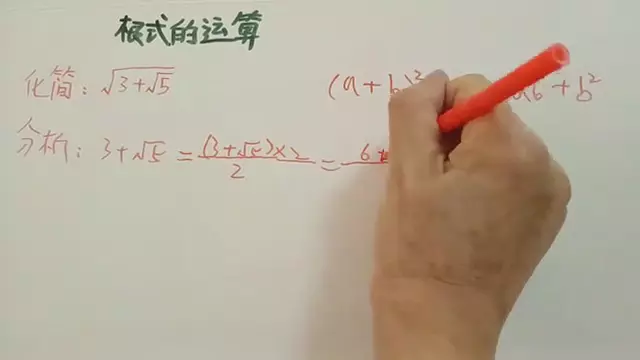 根式的运算
化简: √(3+√5) (a+b)² ab + b²
分析: 3+√5 = (3+√5)×2/2 = 6+